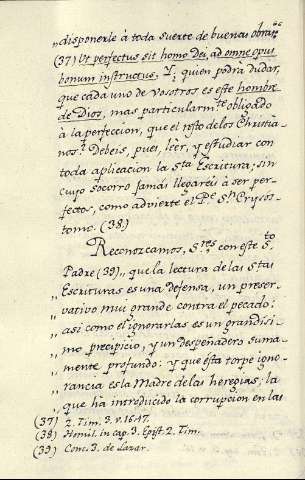 „disponerle à toda suerte de buenas obras
(37) Ut perfectus sit homo Dei, ad omne opus
bonum instructus, I, quien podrà dudar,
que cada uno de Vosotros es este hombre
de Dios, mas particularm.te obligado
à la perfeccion, que el resto delos Christia-
nos? Debeis, pues, leèr, y estudiar con
toda aplicacion la S.ta Escritura; sin
cuyo socorro Jamàs llegarèis à ser per-
fectos, como advierte el P.e S.n Crysos-
tomo. (38)
Reconozcamos, S.res con este S.to
Padre (39)„ que la lectura de las S.tas
„ Escrituras es una defensa, un preser-
„ vativo mui grande contra el pecado:
„ asi como el ignorarlas es un grandisi-
„ mo precipicio, y un Despeñadero suma-
„ mente profundo: y que esta torpe igno-
„ rancia es la Madre delas heregias; la
„ que hà introducido la corrupcion en las
(37) 2. Tim. 3. v. 16.17.
(38) Homil. in cap. 3. Epist. 2. Tim.
(39) Conc. 3. de Lazar.